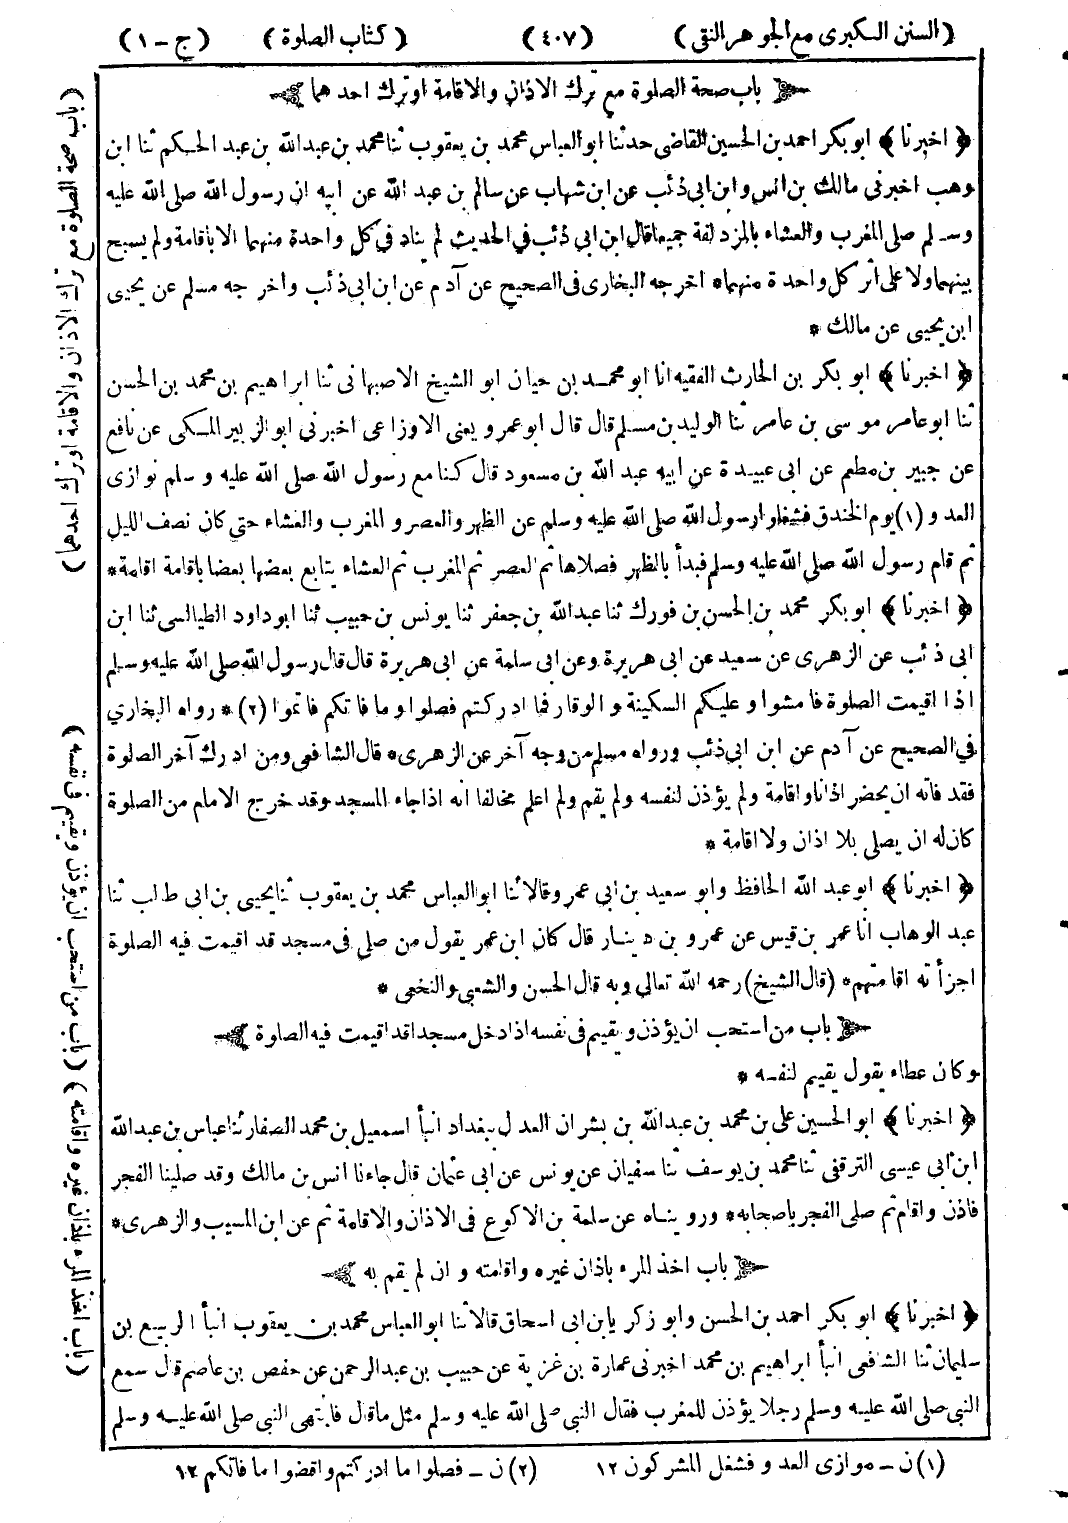 (السنن الكبرى مع الجوهر النقي) (٤٠٧) (كتاب الصلوة) (ج - ١)
باب صحة الصلوة مع ترك الاذان والاقامة او ترك احدهما
﴿ اخبرنا ﴾ ابو بكر احمد بن الحسين القاضى حدثنا ابو العباس محمد بن يعقوب ثنا محمد بن عبدالله بن عبد الحكم ثنا ابن
وهب اخبرني مالك بن انس وابن ابي ذئب عن ابن شهاب عن سالم بن عبد الله عن ابيه ان رسول الله صلى الله عليه
وسلم صلى المغرب والعشاء بالمزدلفة جميعا قال ابن ابي ذئب في الحديث لم يناد في كل واحدة منهما الا باقامة ولم يسبح
بينهما ولا على اثر كل واحدة منهما * اخرجه البخارى فى الصحيح عن آدم عن ابن ابى ذئب واخرجه مسلم عن يحيى
ابن يحيى عن مالك *
﴿ اخبرنا ﴾ ابو بكر بن الحارث الفقيه انا ابو محمد بن حيان ابو الشيخ الاصبهانى ثنا ابراهيم بن محمد بن الحسن
ثنا ابو عامر موسى بن عامر ثنا الوليد بن مسلم قال قال ابو عمرو يعنى الاوزاعى اخبرني ابو الزبير المكى عن نافع
عن جبير بن مطعم عن ابى عبيدة عن ابيه عبد الله بن مسعود قال كنا مع رسول الله صلى الله عليه وسلم نوازى
العدو (١) يوم الخندق فشغلوا رسول الله صلى الله عليه وسلم عن الظهر والعصر والمغرب والعشاء حتى كان نصف الليل
ثم قام رسول الله صلى الله عليه وسلم فبدأ بالظهر فصلاها ثم العصر ثم المغرب ثم العشاء يتابع بعضها بعضا باقامة اقامة *
﴿ اخبرنا ﴾ ابو بكر محمد بن الحسن بن فورك ثنا عبدالله بن جعفر ثنا يونس بن حبيب ثنا ابو داود الطيالسى ثنا ابن
ابى ذئب عن الزهرى عن سعيد عن ابى هريرة وعن ابى سلمة عن ابى هريرة قال قال رسول الله صلى الله عليه وسلم
اذا اقيمت الصلوة فامشوا وعليكم السكينة والوقار فما ادركتم فصلوا وما فاتكم فاتموا (٢) * رواه البخاري
في الصحيح عن آدم عن ابن ابي ذئب ورواه مسلم من وجه آخر عن الزهرى * قال الشافعى ومن ادرك آخر الصلوة
فقد فاته ان يحضر اذانا واقامة ولم يؤذن لنفسه ولم يقم ولم اعلم مخالفا انه اذا جاء المسجد وقد خرج الامام من الصلوة
كان له ان يصلى بلا اذان ولا اقامة *
﴿ اخبرنا ﴾ ابو عبد الله الحافظ وابو سعيد بن ابي عمرو قالا ثنا ابو العباس محمد بن يعقوب ثنا يحيى بن ابى طالب ثنا
عبد الوهاب انا عمر بن قيس عن عمرو بن دينار قال كان ابن عمر يقول من صلى فى مسجد قد اقيمت فيه الصلوة
اجزأته اقامتهم * (قال الشيخ) رحمه الله تعالى وبه قال الحسن والشعبى والنخعى *
باب من استحب ان يؤذن ويقيم فى نفسه اذا دخل مسجدا قد اقيمت فيه الصلوة
وكان عطاء يقول يقيم لنفسه *
﴿ اخبرنا ﴾ ابو الحسين على بن محمد بن عبدالله بن بشران العدل ببغداد انبأ اسمعيل بن محمد الصفار ثنا عباس بن عبدالله
ابن ابي عيسى الترقفى ثنا محمد بن يوسف ثنا سفيان عن يونس عن ابى عثمان قال جاءنا انس بن مالك وقد صلينا الفجر
فاذن واقام ثم صلى الفجر باصحابه * وروينا ه عن سلمة بن الاكوع فى الاذان والاقامة ثم عن ابن المسيب والزهرى *
باب اخذ المرء باذان غيره واقامته وان لم يقم به
﴿ اخبرنا ﴾ ابو بكر احمد بن الحسن وابو زكريا بن ابى اسحاق قالا ثنا ابو العباس محمد بن يعقوب انبأ الربيع بن
سليمان ثنا الشافعى انبأ ابراهيم بن محمد اخبرنى عمارة بن غزية عن حبيب بن عبدالرحمن عن حفص بن عاصم قال سمع
النبى صلى الله عليه وسلم رجلا يؤذن للمغرب فقال النبى صلى الله عليه وسلم مثل ما قال فانتهى النبى صلى الله عليه وسلم
(١) ن - موازى العدو فشغل المشركون ١٢ (٢) ن - فصلوا ما ادركتم واقضوا ما فاتكم ١٢
(باب صحة الصلوة مع ترك الاذان والاقامة او ترك احدهما)
(باب من استحب ان يؤذن ويقيم فى نفسه)
(باب اخذ المرء باذان غيره واقامته)